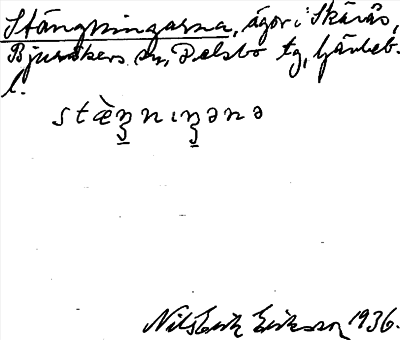 Stängningarna, ägor i Skärås,
Bjuråkers sn, Delsbo tg, Gävleb.
l.
stæ̀ŋnıŋənə
Nils Erik Eriksson 1936.